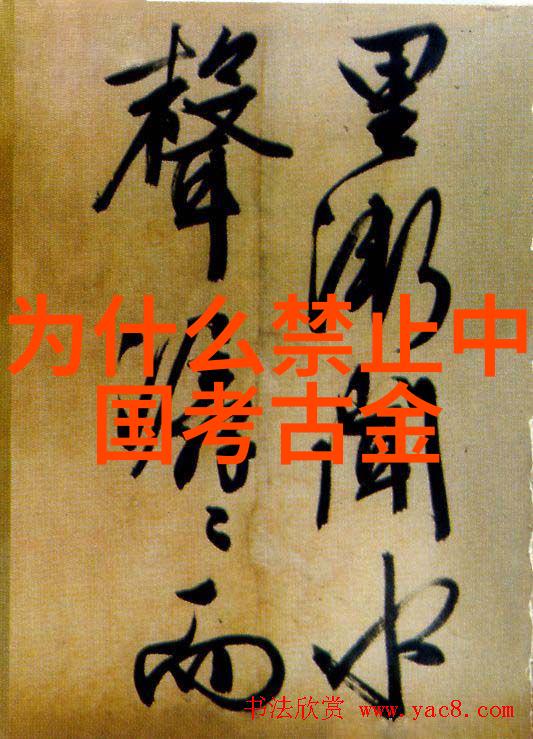 里漸聞水
聲潺〻而
为什么禁止中
国考古金
书法欣赏 www.yac8.com